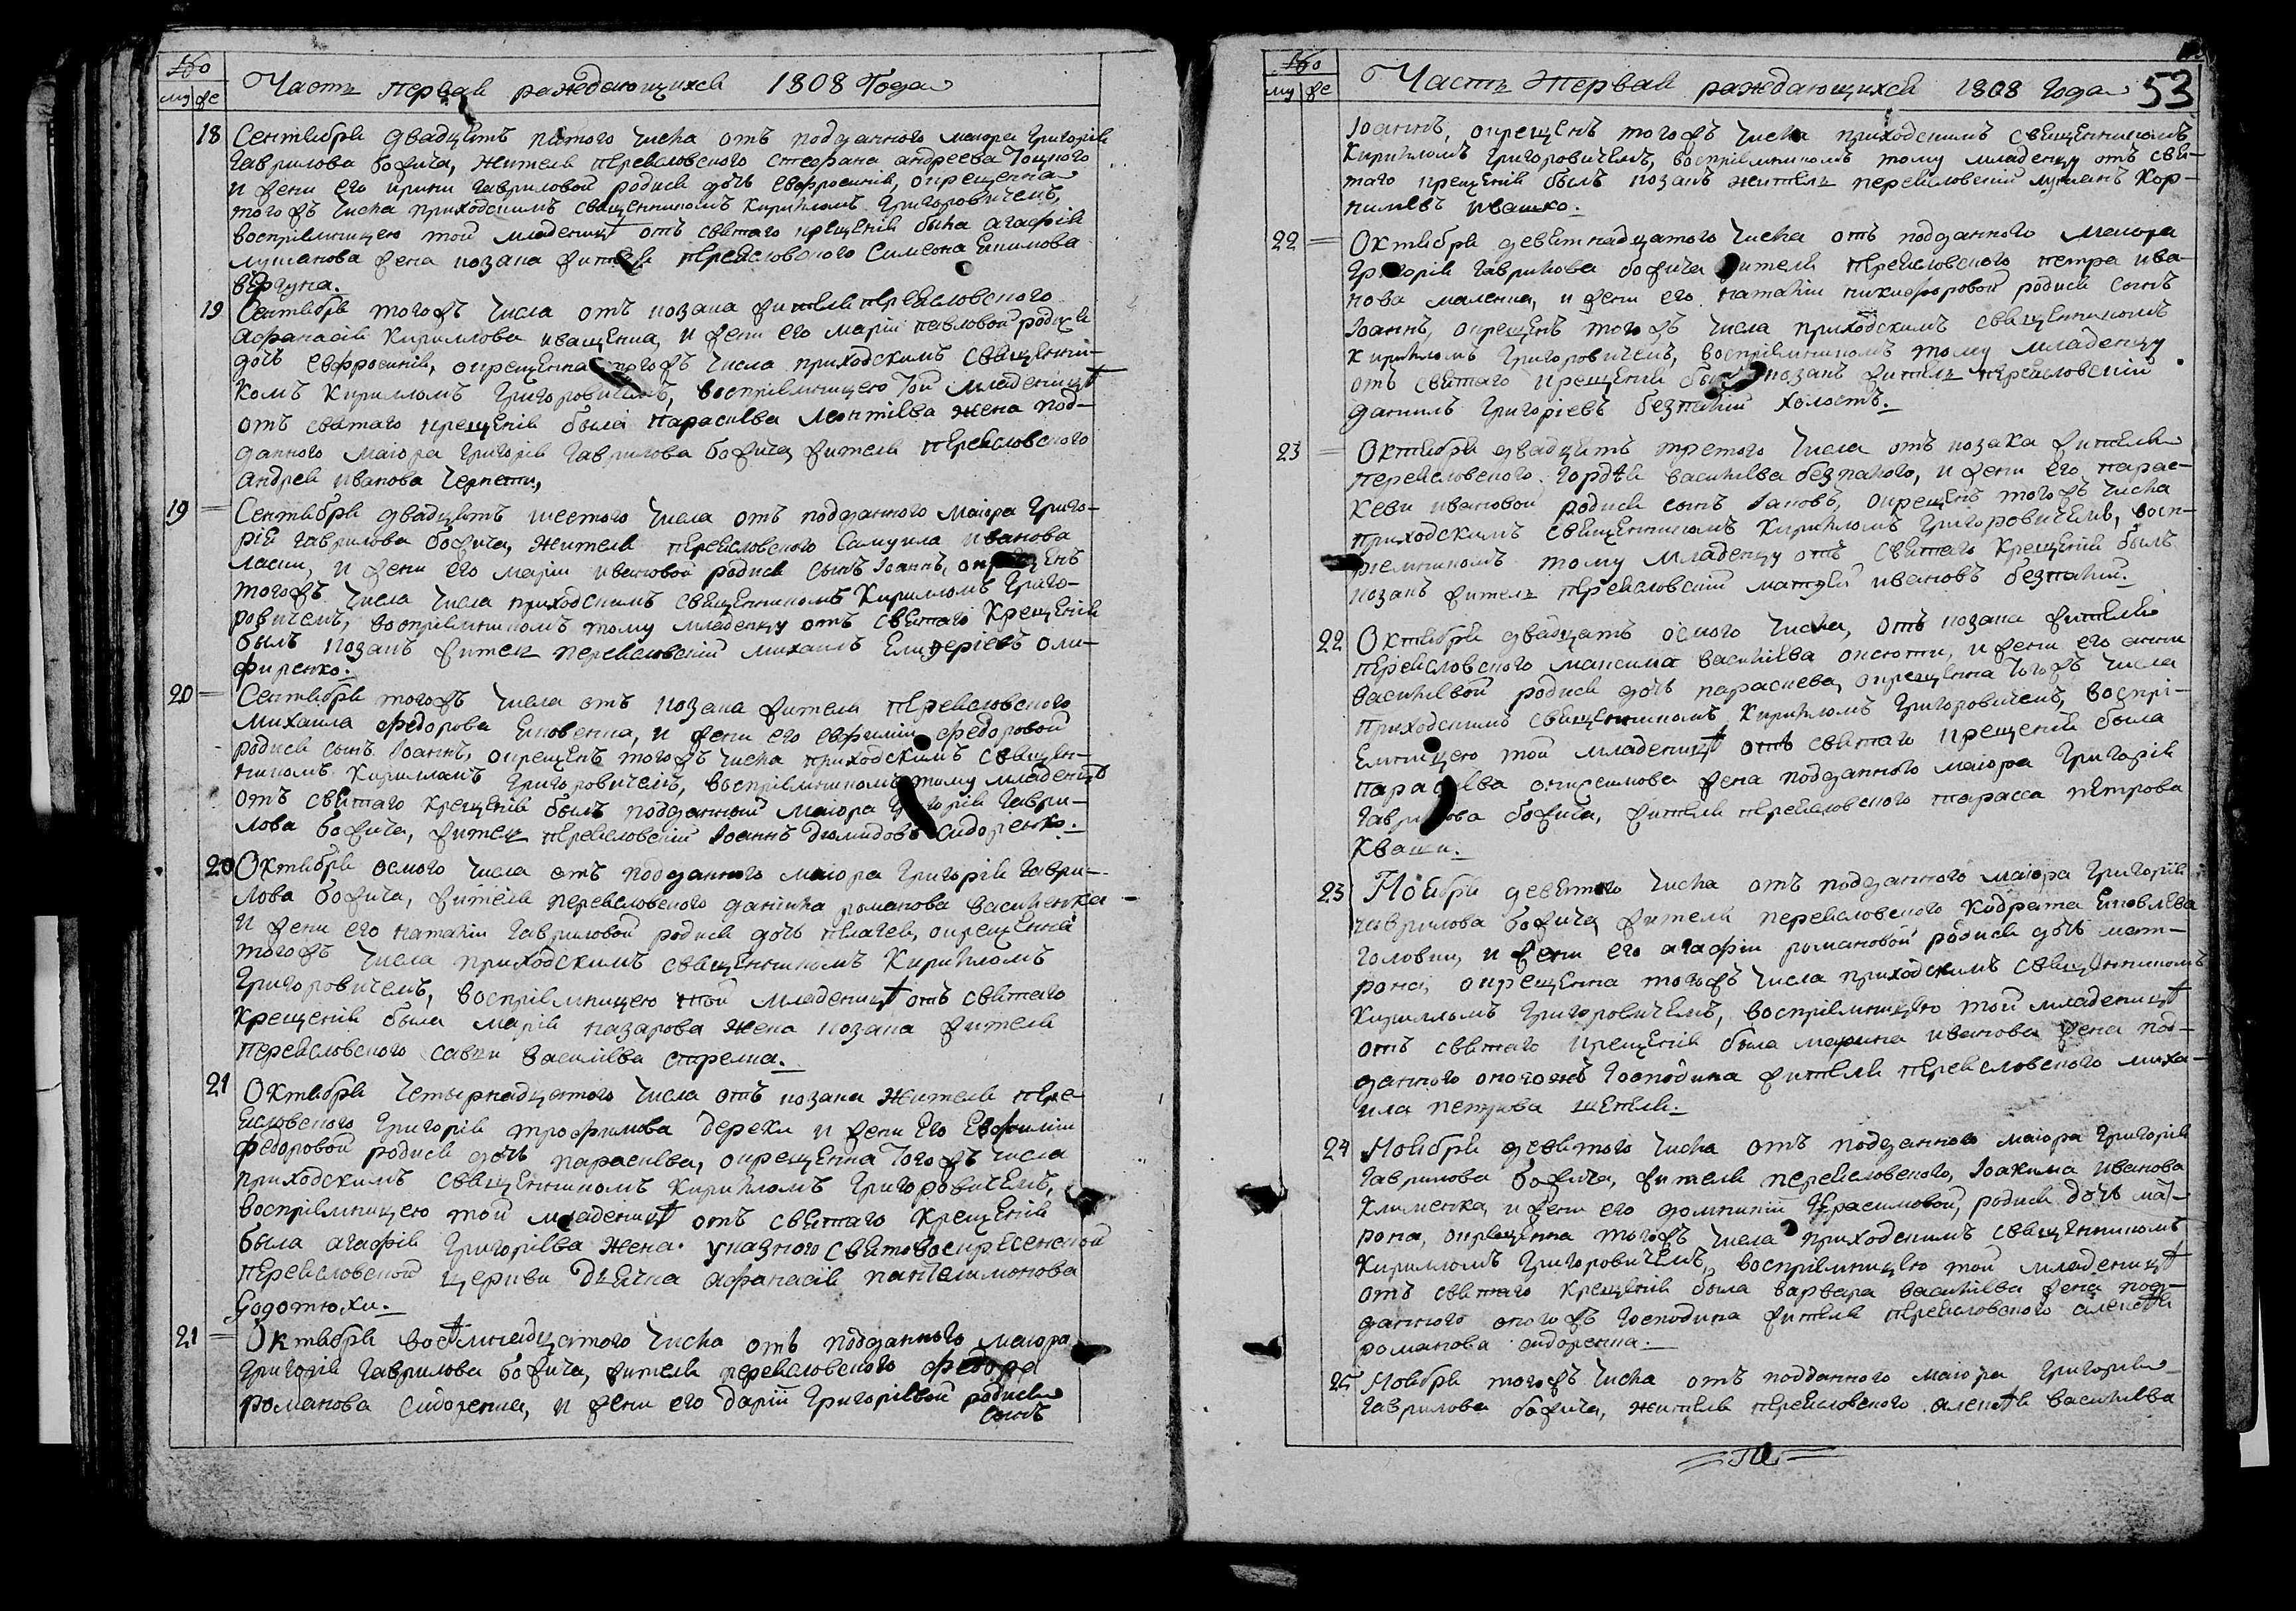 Часть первая раждающихся 1808 Года
му же
18 Сентября двадцять пятого числа отъ подданного маіора Григорія
Гаврилова божича, жителя переясловского стефана андреева Тоцкого
и жены его ирины гавриловой родися дочь евфросинія, окрещенна
тогожъ числа приходскимъ священникомъ Кирилломъ Григоровичемъ,
воспріемницею той младеницѣ отъ святаго крещенія была агафія
лукianова жена козака жителя переясловского Симеона Екимова
вергуна.
19 Сентября тогожъ числа отъ козака жителя переясловского
Афанасія Кириллова иващенка, и жены его маріи павловой родися
дочь евфросинія, окрещенна тогожъ числа приходскимъ священни-
комъ Кирилломъ Григоровичемъ, воспріемницею той младеницѣ
отъ святаго крещенія была параскева леонтіева жена под-
данного маіора григорія гаврилова божича, жителя переясловского
андрея иванова
19 Сентября двадцять шестого числа отъ подданного маіора Григо-
рія гаврилова божича, жителя переясловского Самуила иванова
ласки, и жены его маріи ивановой родися сынъ Іоаннъ, окрещенъ
тогожъ числа числа приходскимъ священникомъ Кирилломъ Григо-
ровичемъ, воспріемникомъ тому младенцу отъ святаго Крещенія
былъ козакъ житель переясловскій михаилъ Елизеріевъ оли-
фиренко.
20 Сентября тогожъ числа отъ козака жителя переясловского
Михаила федорова Яковенка, и жены его евфиміи федоровой
родися сынъ Іоаннъ, окрещенъ тогожъ числа приходскимъ священ-
никомъ Кирилломъ Григоровичемъ, воспріемникомъ тому младенцѣ
отъ святаго крещенія былъ подданный маіора Григорія Гаври-
лова божича, житель переясловскій Іоаннъ Дiомидовъ Сидоренко.
20 Октября осмого числа отъ подданного маіора Григорія Гаври-
лова божича, жителя переясловского даніила романова василенка
и жены его наталіи гавриловой родися дочь пелагея, окрещенна
тогожъ числа приходскимъ священникомъ Кирилломъ
Григоровичемъ, воспріемницею той младеницѣ отъ святаго
крещенія была марія назарова жена козака жителя
переясловского савки василіева стрелка.
21 Октября четырнадцятого числа отъ козака жителя пере-
ясловского Григорія трофимова дереки и жены его Евфиміи
федоровой родися дочь параскева, окрещенна тогожъ числа
приходскимъ священникомъ Кирилломъ Григоровичемъ,
воспріемницею той младеницѣ отъ святаго Крещенія
была агафія Григоріева жена указного святовоскресенской
переясловской церкви дьячка афанасія пантелимонова
21 Октября восѣмнадцятого числа отъ подданного маіора
Григорія Гаврилова божича, жителя переясловского федора
романова сидоренка, и жены его даріи Григоріевой родися
сынъ
му же
Часть первая раждающихся 1808 Года 53
Іоаннъ, окрещенъ тогожъ числа приходскимъ священникомъ
Кирилломъ Григоровичемъ, воспріемникомъ тому младенцу отъ свя-
таго крещенія былъ козакъ житель переясловскій лукianъ Кор-
ниліевъ ивашко.
22 Октября девятнадцатого числа отъ подданного маіора
Григорія Гаврилова божича жителя переясловского петра ива-
нова маленка, и жены его наталіи никифоровой родися сынъ
Іоаннъ, окрещенъ тогожъ числа приходскимъ священникомъ
Кирилломъ Григоровичемъ, воспріемникомъ тому младенцу
отъ святаго крещенія былъ козакъ житель переясловскій
даниилъ Григоріевъ безпалій холостъ.
23 Октября двадцять третого числа отъ козака жителя
переясловского гордѣя василіева безпалого, и жены его парас-
кеви ивановой родися сынъ Іаковъ, окрещенъ тогожъ числа
приходскимъ священникомъ Кирилломъ Григоровичемъ, восп-
ріемникомъ тому младенцу отъ святаго Крещенія былъ
козакъ житель переясловскій матѳей ивановъ безпалій.
22 Октября двадцать осмого числа, отъ козака жителя
переясловского максима василіева оксюти, и жены его анни
василіевой родися дочь параскева, окрещенна тогожъ числа
приходскимъ священникомъ Кирилломъ Григоровичемъ, воспрі-
емницею той младеницѣ отъ святаго крещенія была
параскева онисимова жена подданного маіора Григорія
Гаврилова божича, жителя переясловского тарасса петрова
Кваши.
23 Ноября девятого числа отъ подданного маіора Григорія
гаврилова божича, жителя переясловского Кодрата Яковлева
головки, и жены его агафіи романовой родися дочь мат-
рона, окрещенна тогожъ числа приходскимъ священникомъ
Кирилломъ Григоровичемъ, воспріемницею той младеницѣ
отъ святаго крещенія была марина иванова жена под-
данного оногожъ Господина жителя переясловского миха-
ила петрова
24 Ноября девятого числа отъ подданного маіора Григорія
Гаврилова божича, жителя переясловского, Іоакима иванова
Клименка, и жены его домникіи Герасимовой, родися дочь мат-
рона, окрещенна тогожъ числа приходскимъ священникомъ
Кирилломъ Григоровичемъ, воспріемницею той младеницѣ
отъ святаго Крещенія была варвара василіева жена под-
данного оногожъ Господина жителя переясловского алексѣя
романова сидоренка.
25 Ноября тогожъ числа отъ подданного маіора Григорія
Гаврилова божича, жителя переясловского алексѣя василіева